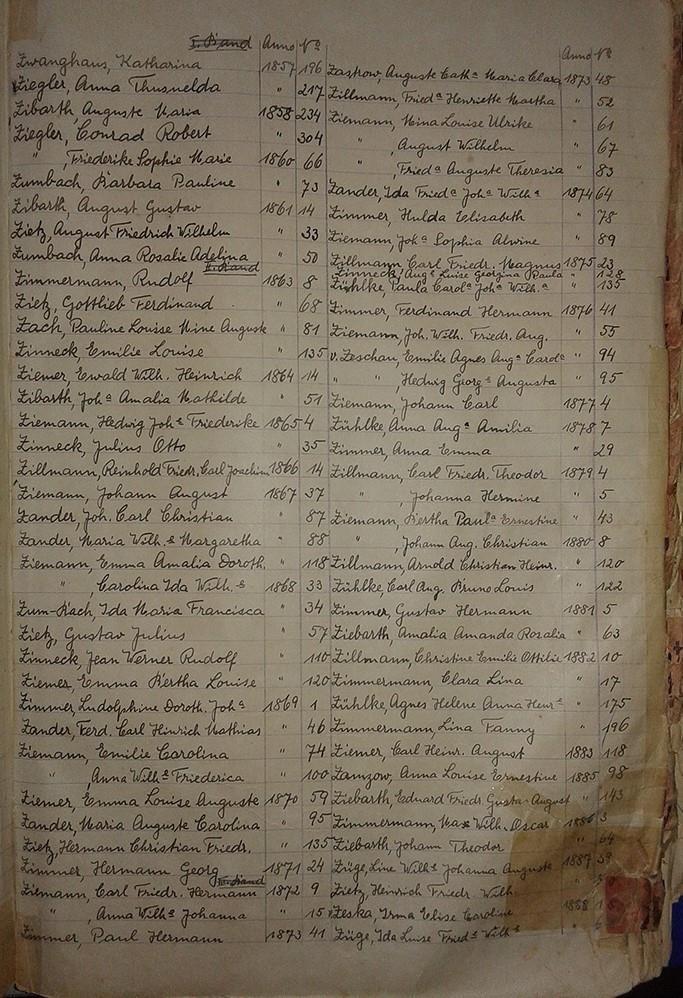 I. Band Anno No
Zwanghaus, Katharina 1857 196
Ziegler, Anna Thusnelda " 217
Zibarth, Auguste Maria 1858 234
Ziegler, Conrad Robert " 304
" , Friederike Sophie Marie 1860 66
Zumbach, Barbara Pauline " 73
Zibarth, August Gustav 1861 14
Zietz, August Friedrich Wilhelm " 33
Zumbach, Anna Rosalie Adelina " 50
II. Band
Zimmermann, Rudolf 1863 8
Zietz, Gottlieb Ferdinand " 68
Zach, Pauline Louise Mine Auguste " 81
Zinneck, Emilie Louise " 135
Ziemer, Ewald Wilh. Heinrich 1864 14
Zibarth, Joha Amalia Mathilde " 51
Ziemann, Hedwig Johe Friederike 1865 4
Zinneck, Julius Otto " 35
Zillmann, Reinhold Friedr. Carl Joachim 1866 14
Ziemann, Johann August 1867 37
Zander, Joh. Carl Christian " 87
Zander, Maria Wilhe Margaretha " 88
Ziemann, Emma Amalia Doroth. " 118
" , Carolina Ida Wilhe 1868 33
Zum-Bach, Ida Maria Francisca " 34
Zietz, Gustav Julius " 57
Zinneck, Jean Werner Rudolf " 110
Ziemer, Emma Bertha Louise " 120
Zimmer, Ludolphine Doroth. Joha 1869 1
Zander, Ferd. Carl Hinrich Mathias " 46
Ziemann, Emilie Carolina " 74
" , Anna Wilhe Friederica " 100
Ziemer, Emma Louise Auguste 1870 59
Zander, Maria Auguste Carolina " 95
Zietz, Hermann Christian Friedr. " 135
Zimmer, Hermann Georg 1871 24
Band
Ziemann, Carl Friedr. Hermann 1872 9
" , Anna Wilhe Johanna " 15
Zimmer, Paul Hermann 1873 41
Anno No
Zastrow, Auguste Catha Maria Clara 1873 48
Zillmann, Frieda Henriette Martha " 52
Ziemann, Mina Louise Ulrike " 61
" , August Wilhelm " 67
" , Frieda Auguste Theresia " 83
Zander, Ida Frieda Joha Wilha 1874 64
Zimmer, Hulda Elisabeth " 78
Ziemann, Joha Sophia Alwine " 89
Zillmann, Carl Friedr. Magnus 1875 23
Zinneck, Auge Luise Georgina Paula " 128
Zühlke, Paula Carola Joha Wilha " 135
Zimmer, Ferdinand Hermann 1876 41
Ziemann, Joh. Wilh. Friedr. Aug. " 55
v. Zeschau, Emilie Agnes Auga Carola " 94
" " , Hedwig George Augusta " 95
Ziemann, Johann Carl 1877 4
Zühlke, Anna Auga Amilia 1878 7
Zimmer, Anna Emma " 29
Zillmann, Carl Friedr. Theodor 1879 4
" , Johanna Hermine " 5
Ziemann, Bertha Paula Ernestine " 43
" , Johann Aug. Christian 1880 8
Zillmann, Arnold Christian Heinr. " 120
Zühlke, Carl Aug. Bruno Louis " 122
Zimmer, Gustav Hermann 1881 5
Ziebarth, Amalia Amanda Rosalia " 63
Zillmann, Christine Emilie Ottilie 1882 10
Zimmermann, Clara Lina " 17
Zühlke, Agnes Helene Anna Henre " 175
Zimmermann, Lina Fanny " 196
Ziemer, Carl Heinr. August 1883 118
Zamzow, Anna Louise Ernestine 1885 98
Ziebarth, Eduard Friedr. Gustav August " 143
Zimmermann, Max Wilh. Oscar 1886 3
Ziebarth, Johann Theodor " 64
Züge, Line Wilhe Johanna Auguste 1887 59
Zietz, Heinrich Friedr. Wilh.
v. Zeska, Irma Elise Caroline 1888
Züge, Ida Luise Friede Wilhe "